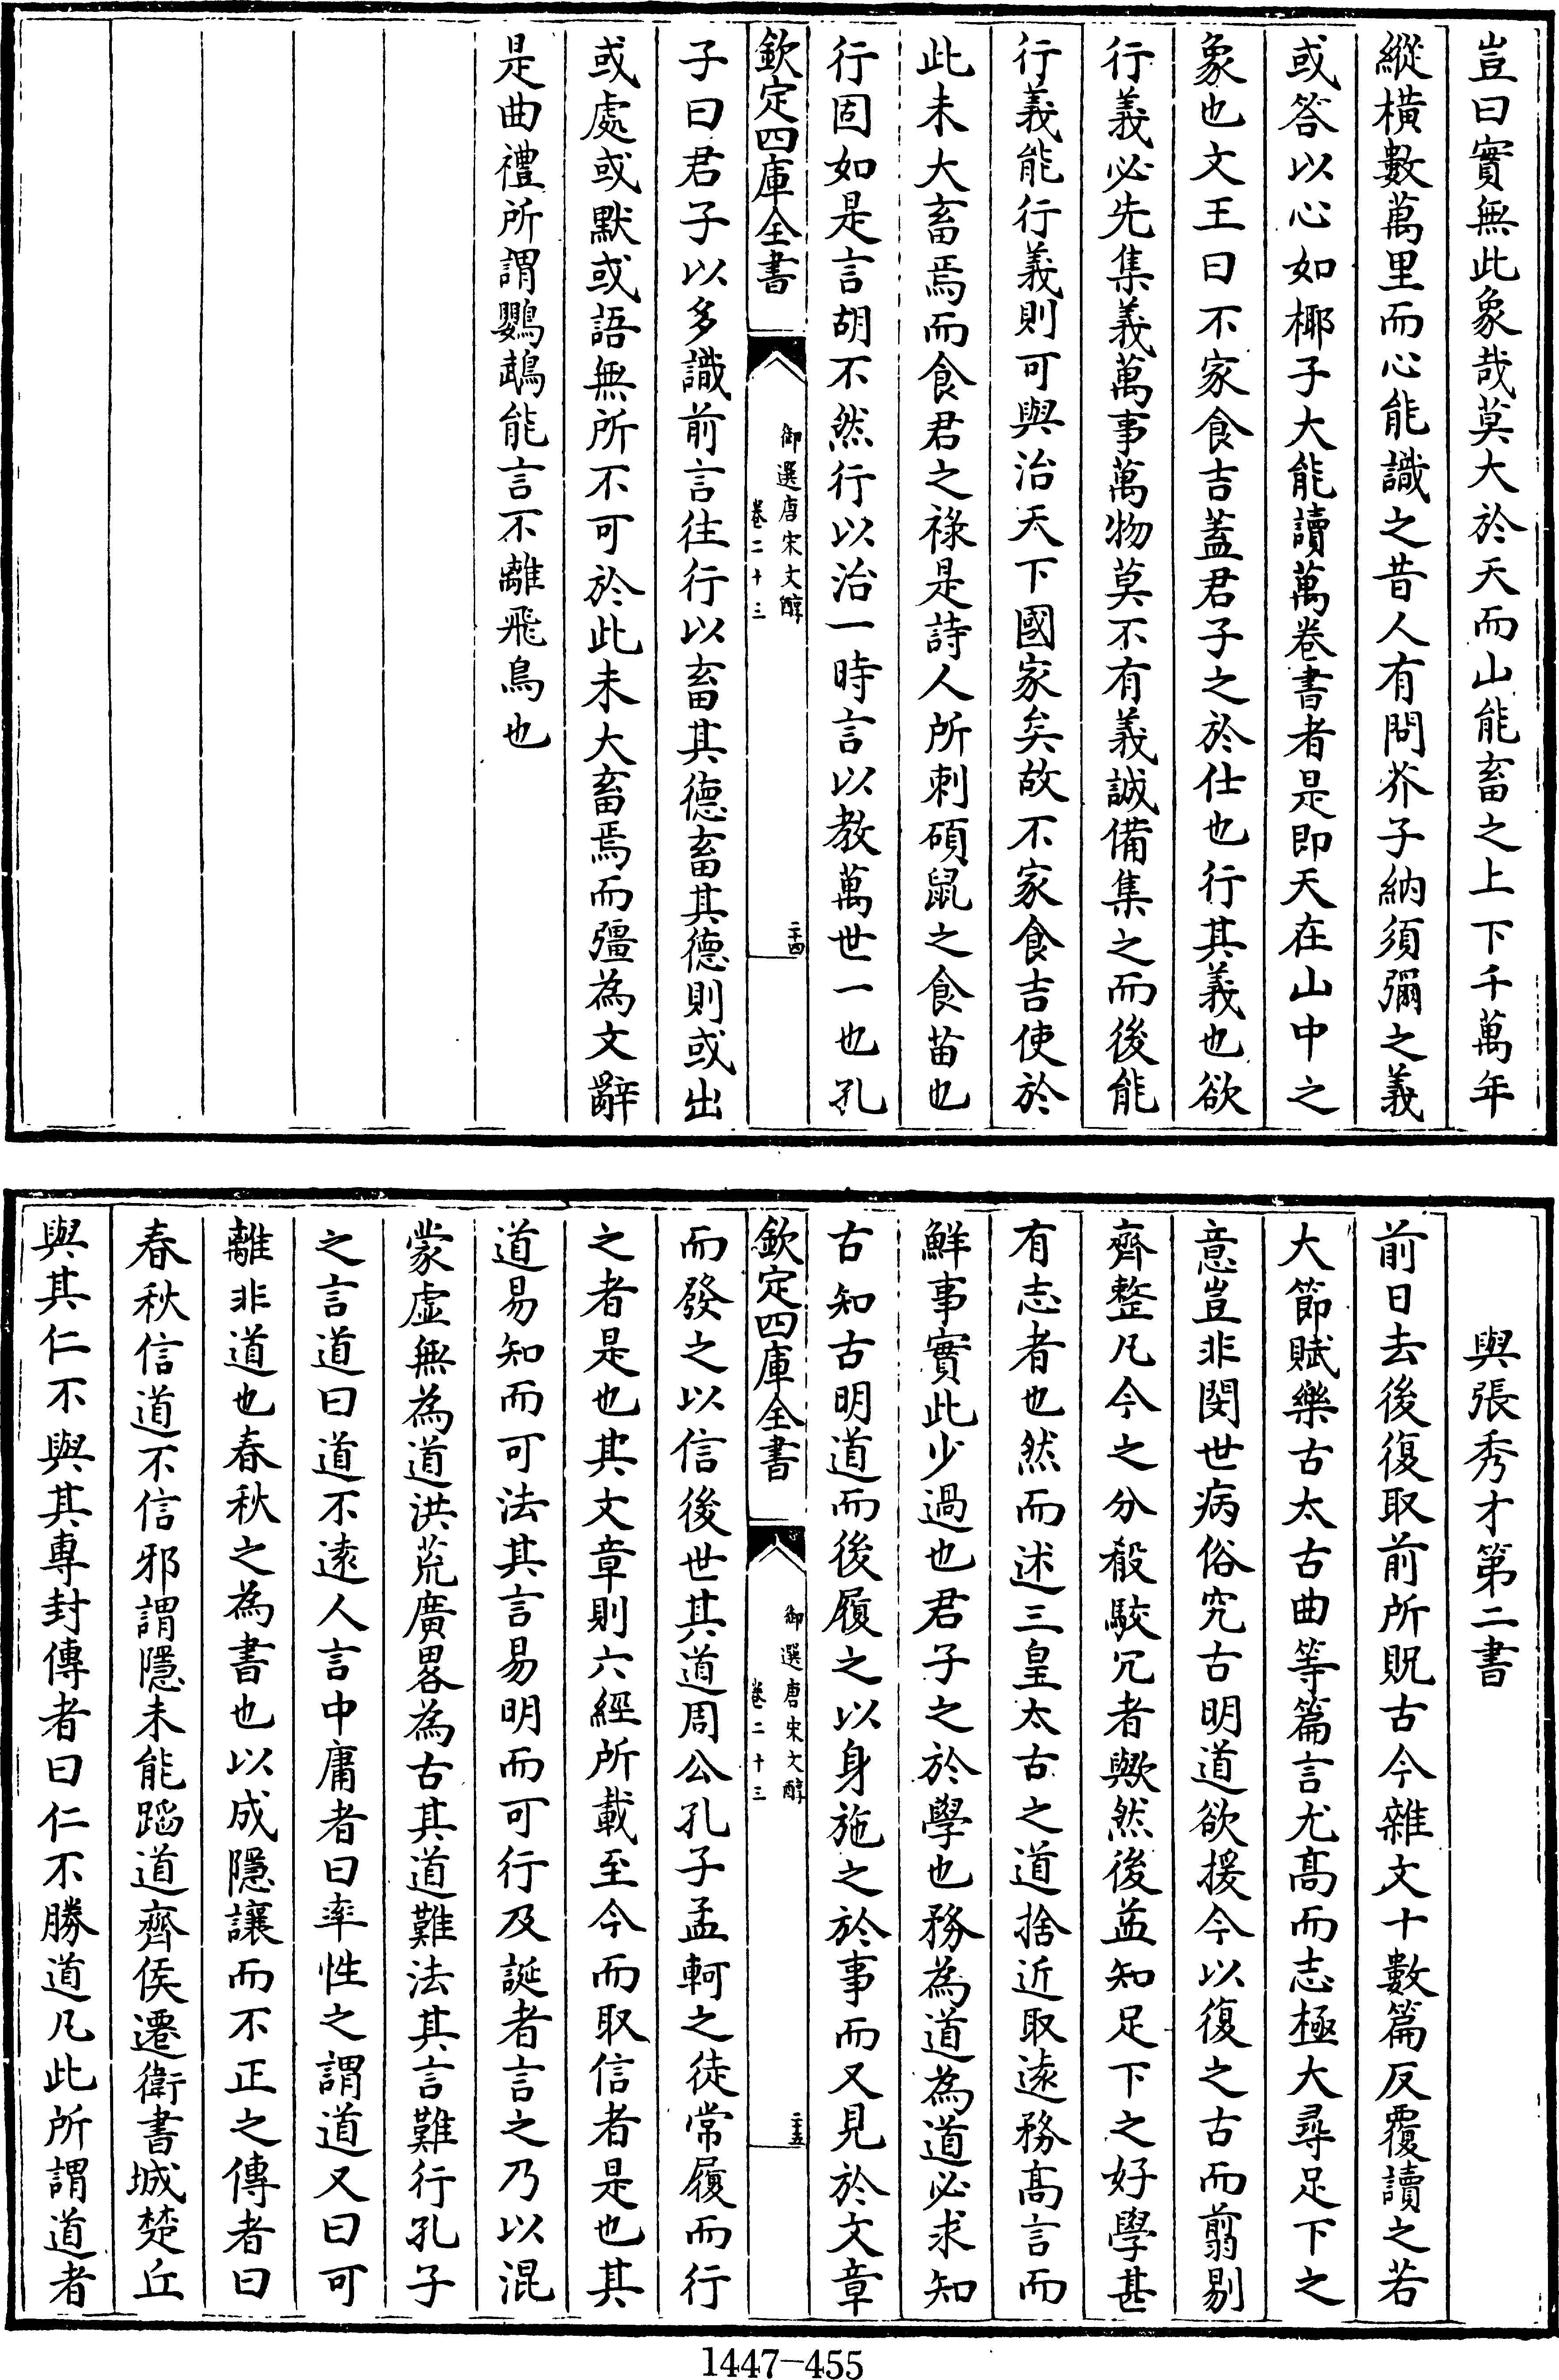 豈曰實無此象哉莫大於天而山能畜之上下千萬年
縱橫數萬里而心能識之昔人有問芥子納須彌之義
或答以心如椰子大能讀萬卷書者是即天在山中之
象也文王曰不家食吉蓋君子之於仕也行其義也欲
行義必先集義萬事萬物莫不有義誠備集之而後能
行義能行義則可與治天下國家矣故不家食吉使於
此未大畜焉而食君之祿是詩人所刺碩鼠之食苗也
行固如是言胡不然行以治一時言以教萬世一也孔
欽定四庫全書
御選唐宋文醇
卷二十三
二十四
子曰君子以多識前言往行以畜其德畜其德則或出
或處或默或語無所不可於此未大畜焉而彊為文辭
是曲禮所謂鸚鵡能言不離飛鳥也
與張秀才第二書
前日去後復取前所貺古今雜文十數篇反覆讀之若
大節賦樂古太古曲等篇言尤髙而志極大尋足下之
意豈非閔世病俗究古明道欲援今以復之古而翦剔
齊整凡今之分殽駁冗者歟然後益知足下之好學甚
有志者也然而述三皇太古之道捨近取遠務髙言而
鮮事實此少過也君子之於學也務為道為道必求知
古知古明道而後履之以身施之於事而又見於文章
欽定四庫全書
御選唐宋文醇
卷二十三
二十五
而發之以信後世其道周公孔子孟軻之徒常履而行
之者是也其文章則六經所載至今而取信者是也其
道易知而可法其言易明而可行及誕者言之乃以混
蒙虛無為道洪荒廣畧為古其道難法其言難行孔子
之言道曰道不遠人言中庸者曰率性之謂道又曰可
離非道也春秋之為書也以成隱讓而不正之傳者曰
春秋信道不信邪謂隱未能蹈道齊侯遷衛書城楚丘
與其仁不與其專封傳者曰仁不勝道凡此所謂道者
1447-455